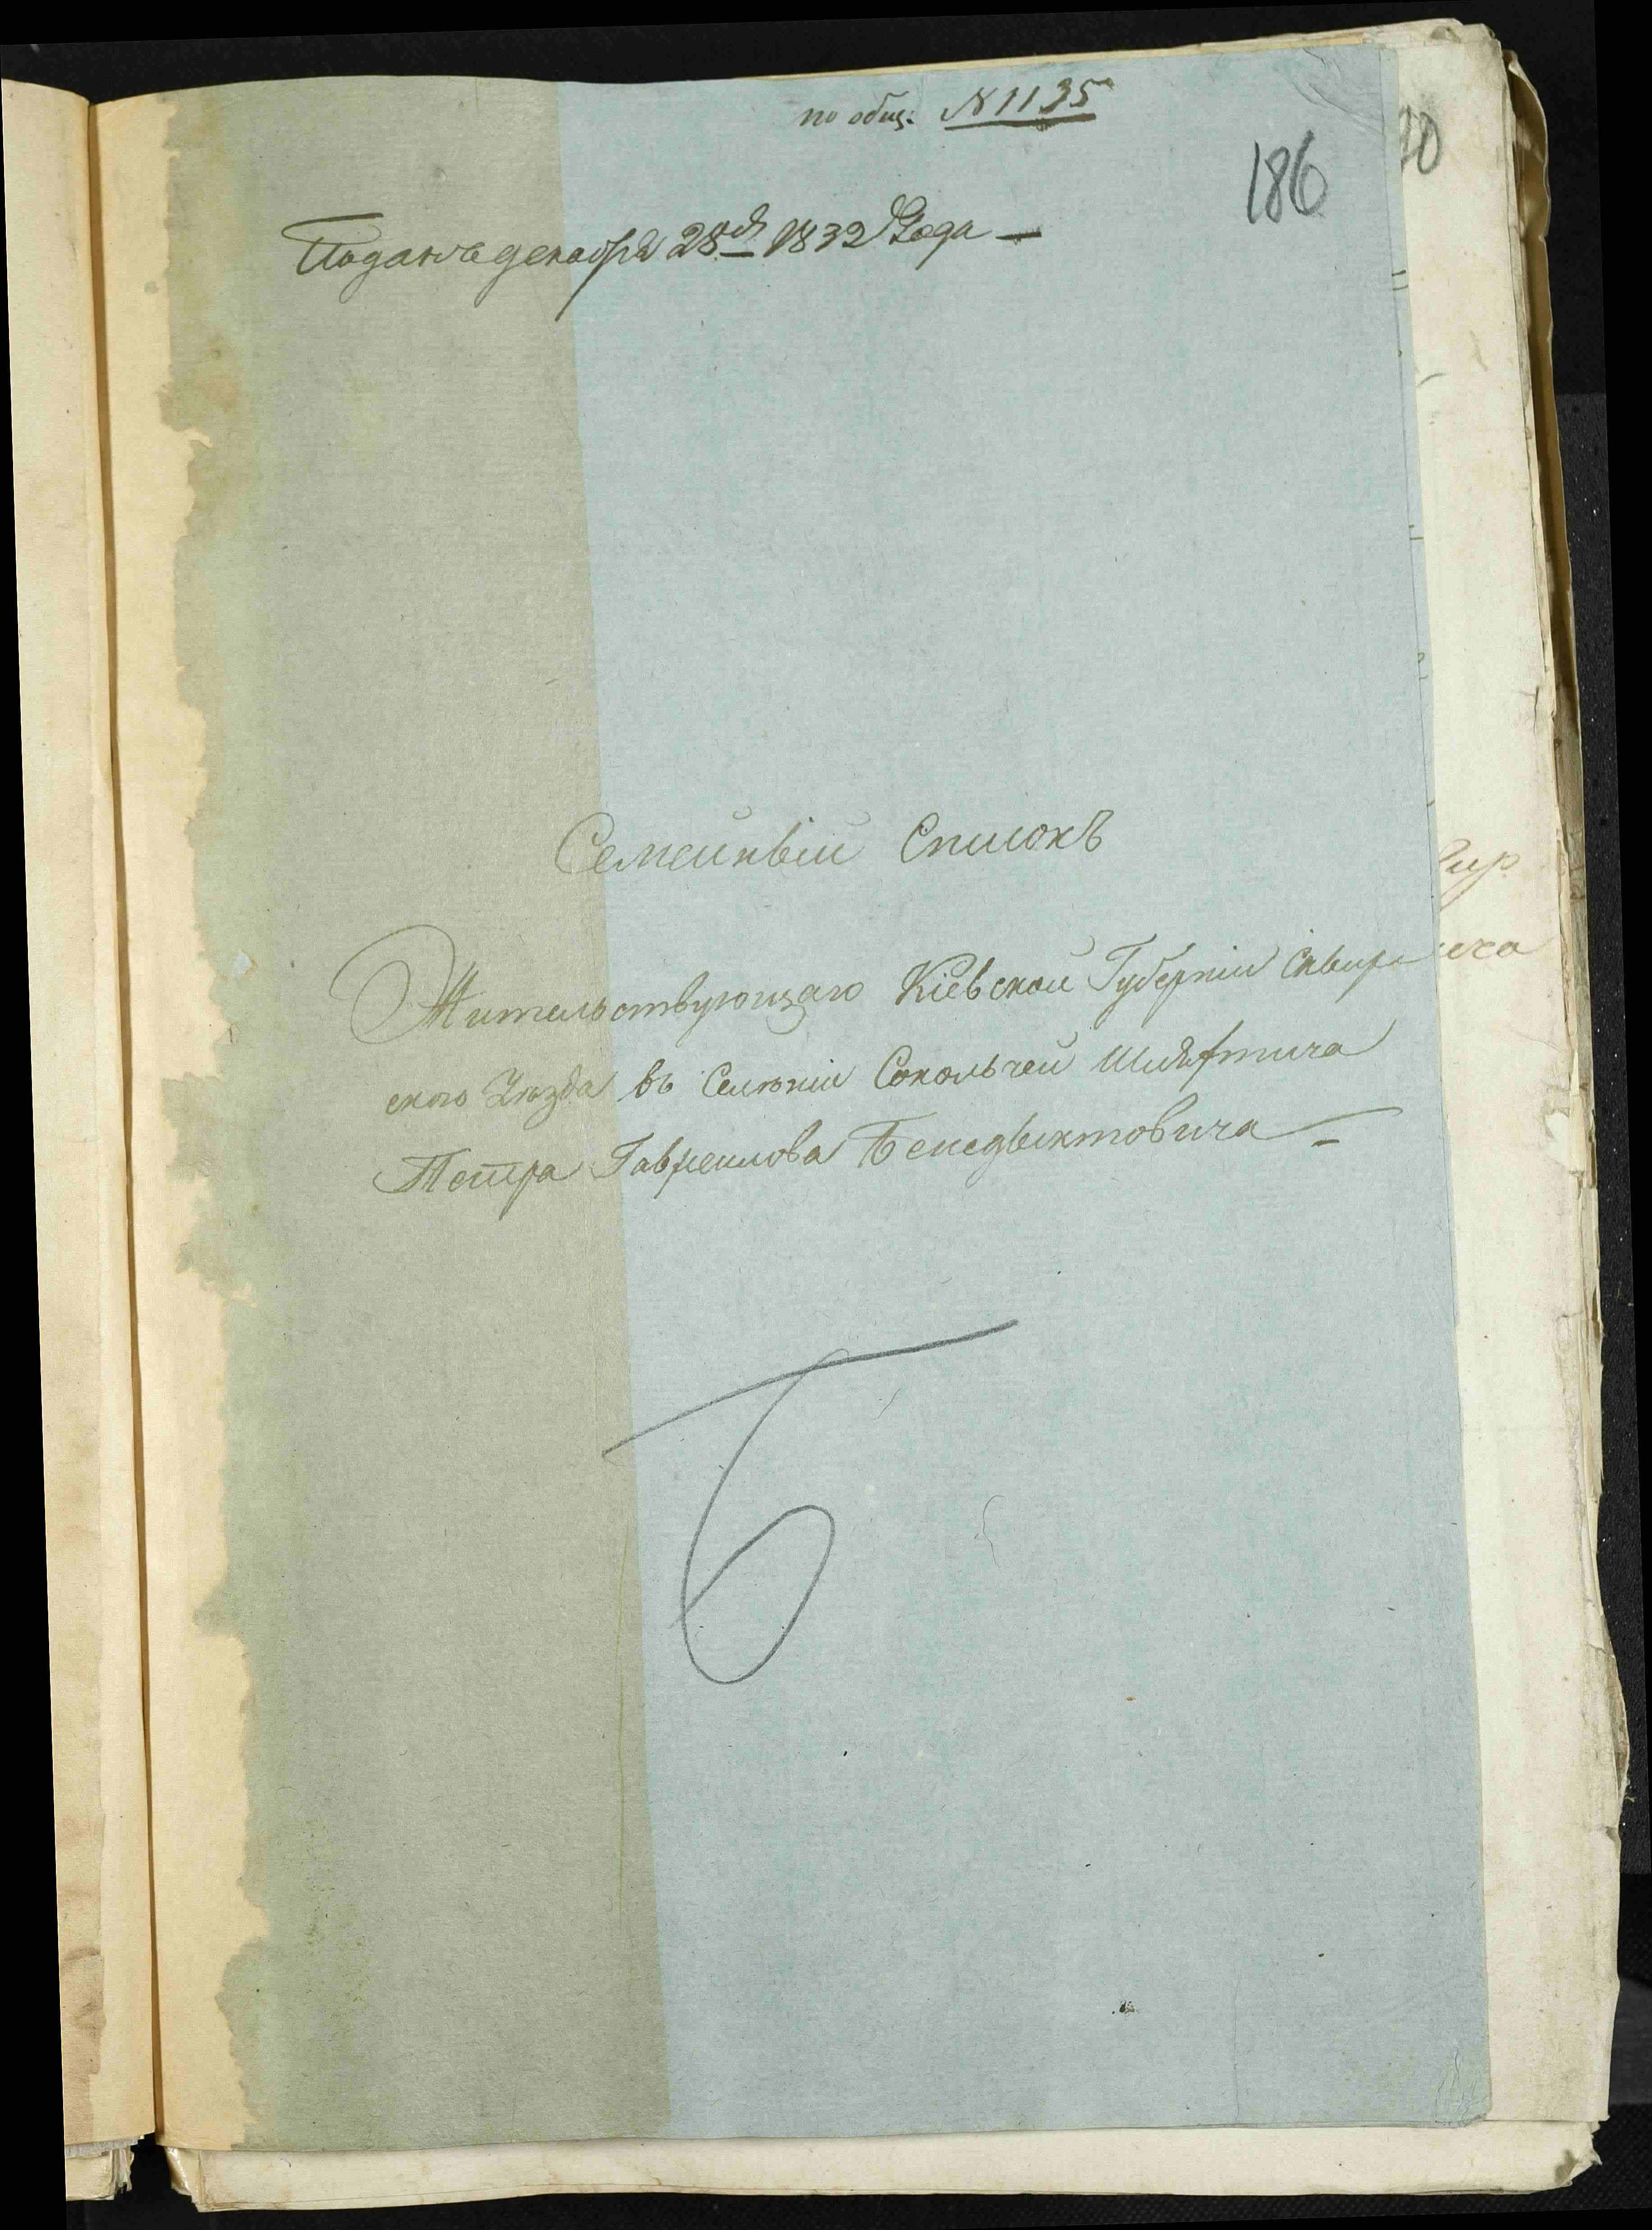 по общ: №1135
186
Поданъ декабря 28го 1832 Года —
Семейный Списокъ
Жительствующаго Кіевской Губерніи Сквир
ского Уезда въ Селеніи Сокольчей Шляхтича
Петра Гаврилова Бенедыктовича —
Б